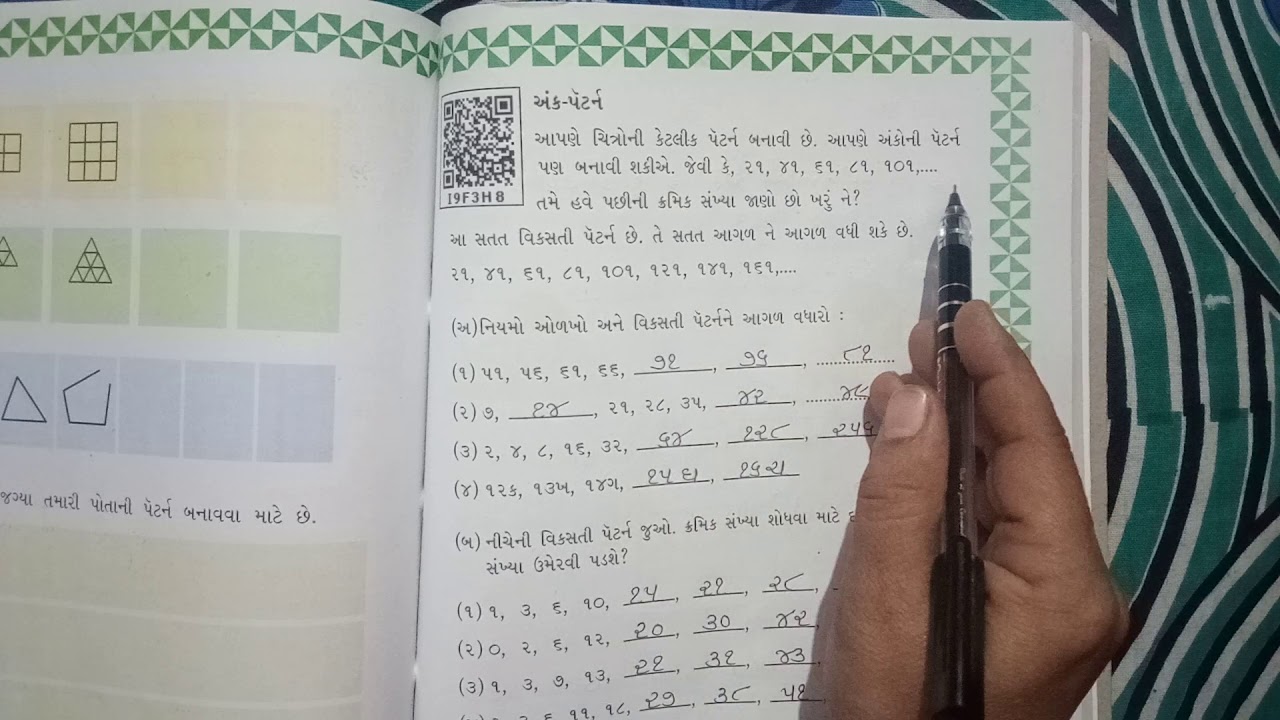 અંક-પૅટર્ન
આપણે ચિત્રોની કેટલીક પૅટર્ન બનાવી છે. આપણે અંકોની પૅટર્ન
પણ બનાવી શકીએ. જેવી કે, ૨૧, ૪૧, ૬૧, ૮૧, ૧૦૧,....
I9F3H8
તમે હવે પછીની ક્રમિક સંખ્યા જાણો છો ખરું ને?
આ સતત વિકસતી પૅટર્ન છે. તે સતત આગળ ને આગળ વધી શકે છે.
૨૧, ૪૧, ૬૧, ૮૧, ૧૦૧, ૧૨૧, ૧૪૧, ૧૬૧,....
(અ)નિયમો ઓળખો અને વિકસતી પૅટર્નને આગળ વધારો :
(૧) ૫૧, ૫૬, ૬૧, ૬૬, ૭૧, ૭૬, ૮૧
(૨) ૭, ૧૪, ૨૧, ૨૮, ૩૫, ૪૨, ૪૮
(૩) ૨, ૪, ૮, ૧૬, ૩૨, ૬૪, ૧૨૮, ૨૫૬
(૪) ૧૨ક, ૧૩ખ, ૧૪ગ, ૧૫ ઘ, ૧૬ ચ
જગ્યા તમારી પોતાની પૅટર્ન બનાવવા માટે છે.
(બ) નીચેની વિકસતી પૅટર્ન જુઓ. ક્રમિક સંખ્યા શોધવા માટે
સંખ્યા ઉમેરવી પડશે?
(૧) ૧, ૩, ૬, ૧૦, ૧૫, ૨૧, ૨૮,
(૨) ૦, ૨, ૬, ૧૨, ૨૦, ૩૦, ૪૨,
(૩) ૧, ૩, ૭, ૧૩, ૨૧, ૩૧, ૪૩,
૬, ૧૧, ૧૮, ૨૭, ૩૮, ૫૧